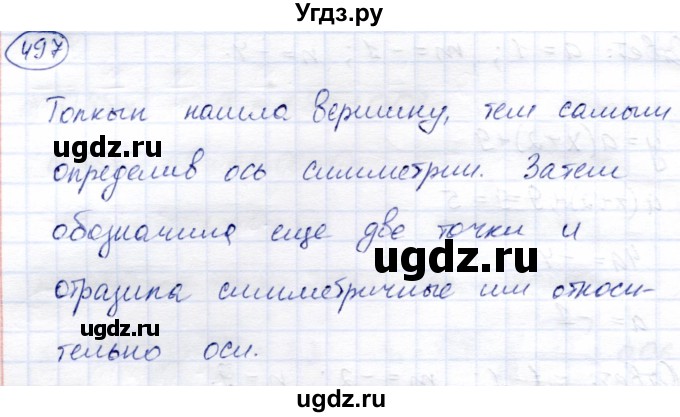 ГДЗ.ру
497
Толкын нашла вершину, тем самым
ugdz.ru
определив ось симметрии. Затем
обозначила еще две точки и
ugdz.ru
ugdz.ru
отразила симметричные им относи-
тельно оси.
ugdz.ru